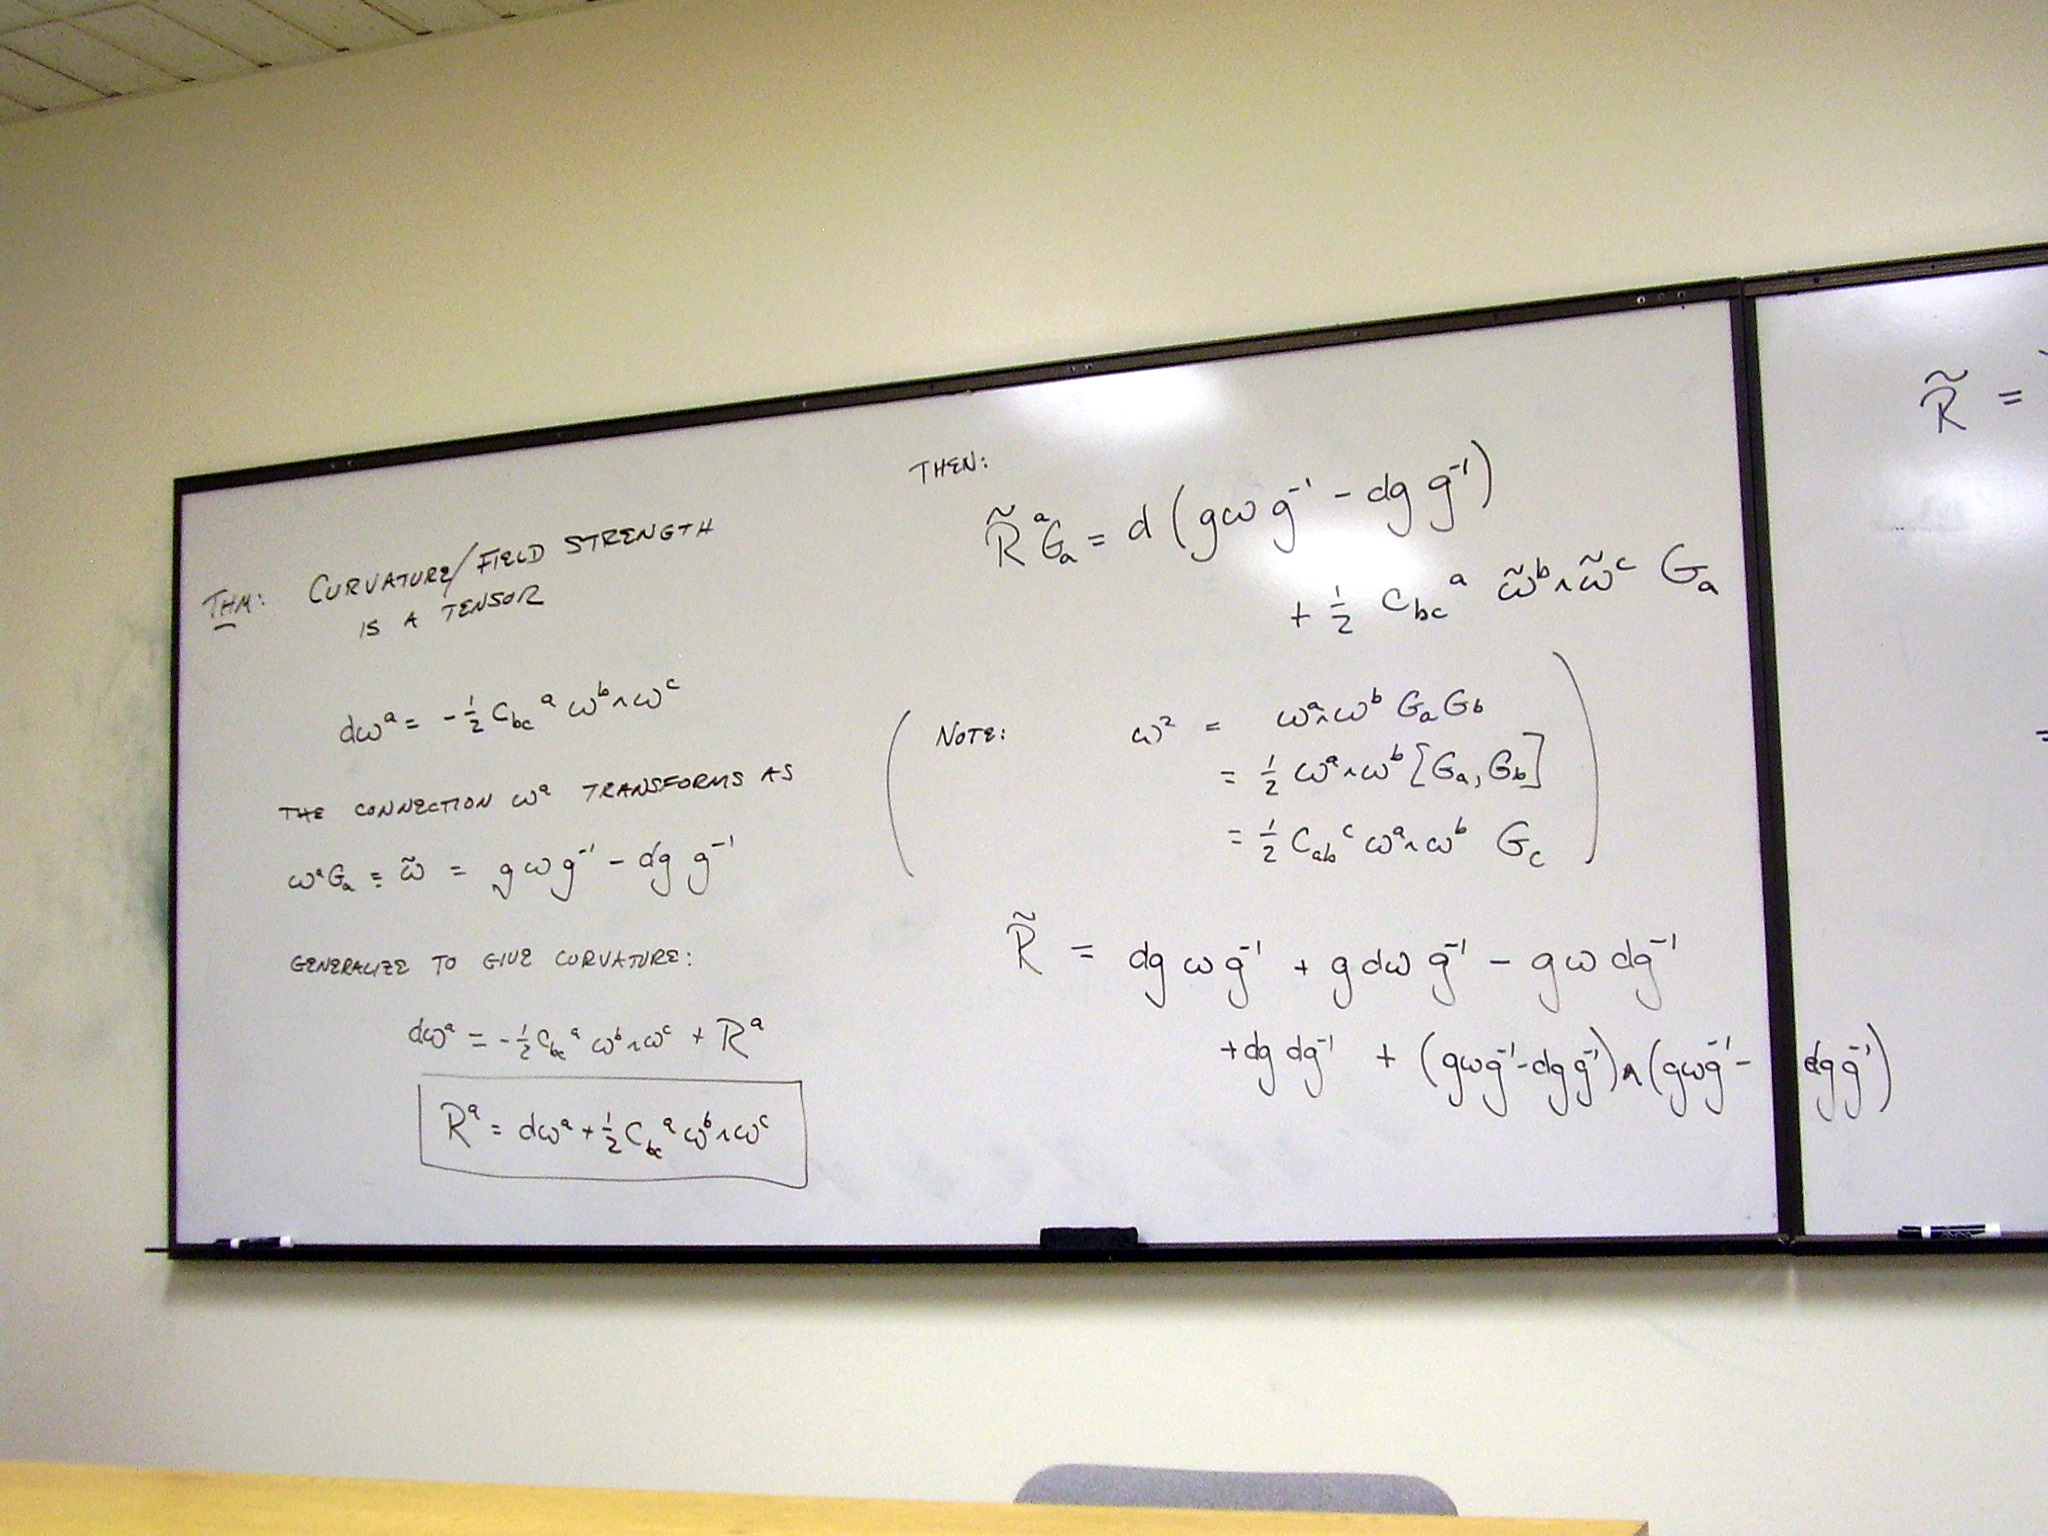 THM: CURVATURE/FIELD STRENGTH
IS A TENSOR
dωᵃ = -½ C_bc ᵃ ωᵇ∧ωᶜ
THE CONNECTION ωᵃ TRANSFORMS AS
ωᵃGₐ ≡ ω̃ = g ω g⁻¹ - dg g⁻¹
GENERALIZE TO GIVE CURVATURE:
dωᵃ = -½ C_bc ᵃ ωᵇ∧ωᶜ + Rᵃ
Rᵃ = dωᵃ + ½ C_bc ᵃ ωᵇ∧ωᶜ
THEN:
R̃ᵃGₐ = d (gω g⁻¹ - dg g⁻¹)
+ ½ C_bc ᵃ ω̃ᵇ∧ω̃ᶜ Gₐ
(NOTE: ω² = ωᵃ∧ωᵇ Gₐ G_b
= ½ ωᵃ∧ωᵇ [Gₐ, G_b]
= ½ C_ab ᶜ ωᵃ∧ωᵇ G_c)
R̃ = dg ω g⁻¹ + g dω g⁻¹ - g ω dg⁻¹
+ dg dg⁻¹ + (gωg⁻¹ - dg g⁻¹)∧(gωg⁻¹ - dg g⁻¹)
R̃ =
=